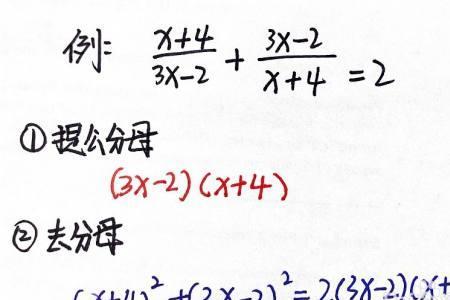 例: (x+4)/(3x-2) + (3x-2)/(x+4) = 2
①提公分母
(3x-2)(x+4)
②去分母
(x+4)²+(3x-2)²=2(3x-2)(x+